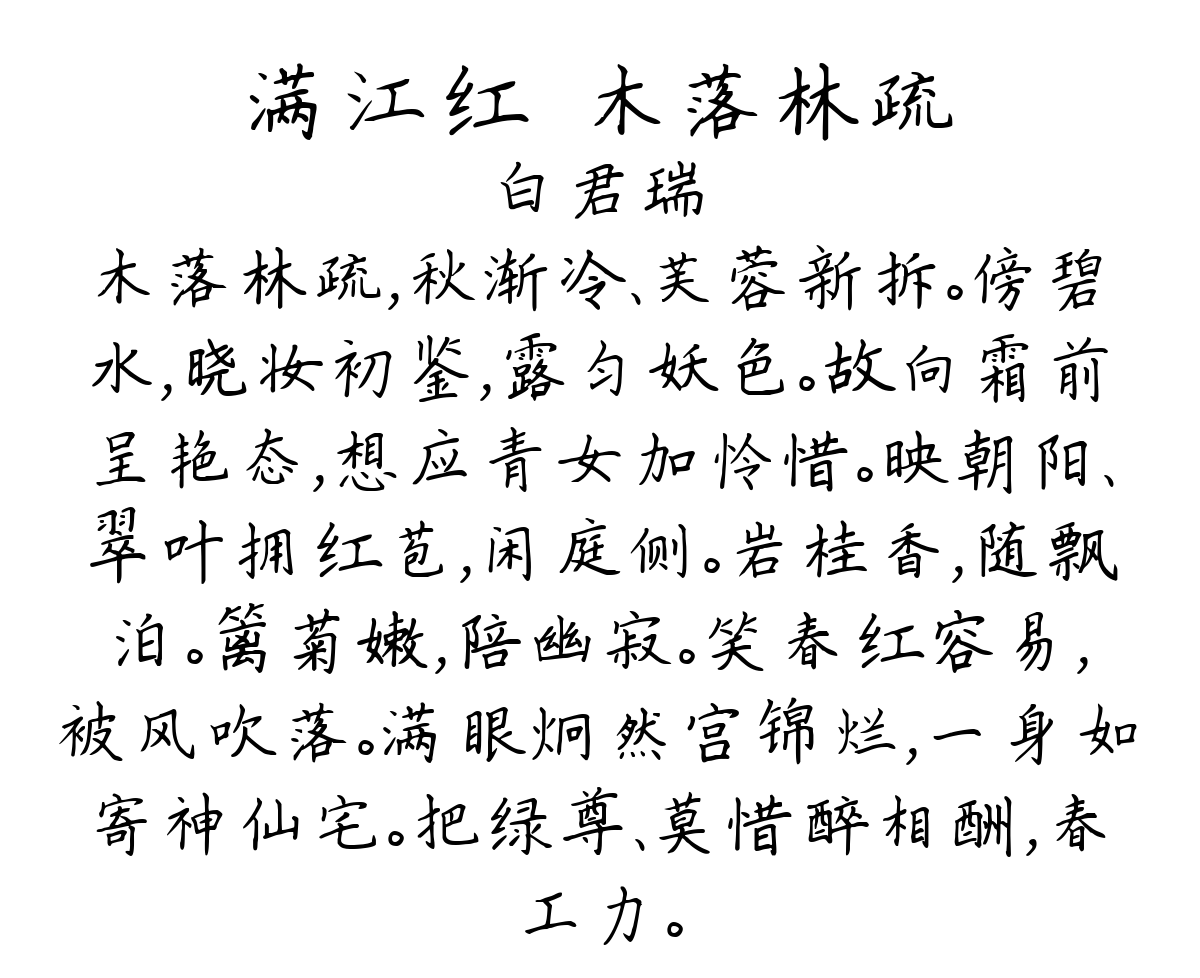 满江红 木落林疏
白君瑞
木落林疏,秋渐冷、芙蓉新拆。傍碧
水,晓妆初鉴,露匀妖色。故向霜前
呈艳态,想应青女加怜惜。映朝阳、
翠叶拥红苞,闲庭侧。岩桂香,随飘
泊。篱菊嫩,陪幽寂。笑春红容易,
被风吹落。满眼炯然宫锦烂,一身如
寄神仙宅。把绿尊、莫惜醉相酬,春
工力。